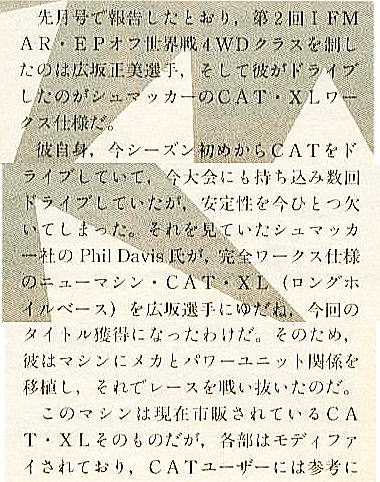 先月号で報告したとおり，第2回IFM
AR・EPオフ世界戦4WDクラスを制し
たのは広坂正美選手，そして彼がドライブ
したのがシュマッカーのCAT・XLワー
クス仕様だ。
彼自身，今シーズン初めからCATをド
ライブしていて，今大会にも持ち込み数回
ドライブしていたが，安定性を今ひとつ欠
いてしまった。それを見ていたシュマッカ
ー社のPhil Davis氏が，完全ワークス仕様
のニューマシン・CAT・XL（ロングホ
イルベース）を広坂選手にゆだね，今回の
タイトル獲得になったわけだ。そのため，
彼はマシンにメカとパワーユニット関係を
移植し，それでレースを戦い抜いたのだ。
このマシンは現在市販されているCA
T・XLそのものだが，各部はモディファ
イされており，CATユーザーには参考に